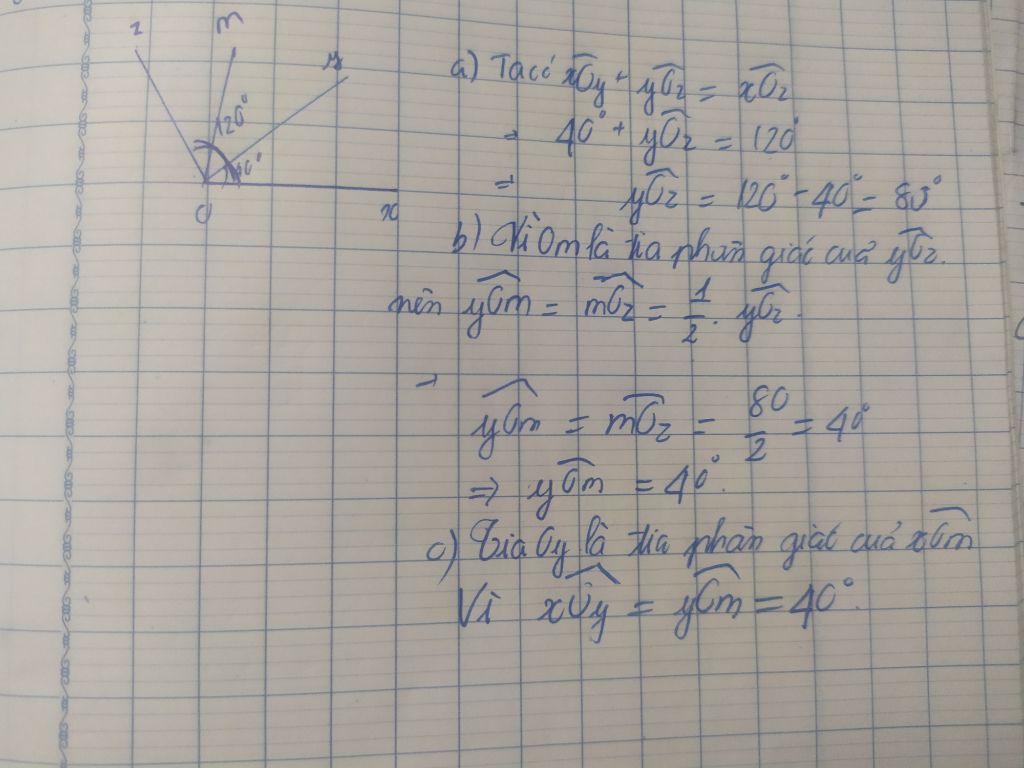 z m y
120°
40°
O x
a) Ta có xÔy + yÔz = xÔz
⇒ 40° + yÔz = 120°
⇒ yÔz = 120° - 40° = 80°
b) Vì Om là tia phân giác của yÔz.
nên yÔm = mÔz = 1/2 . yÔz.
→ yÔm = mÔz = 80/2 = 40°
⇒ yÔm = 40°.
c) Tia Oy là tia phân giác của xÔm
Vì xÔy = yÔm = 40°.